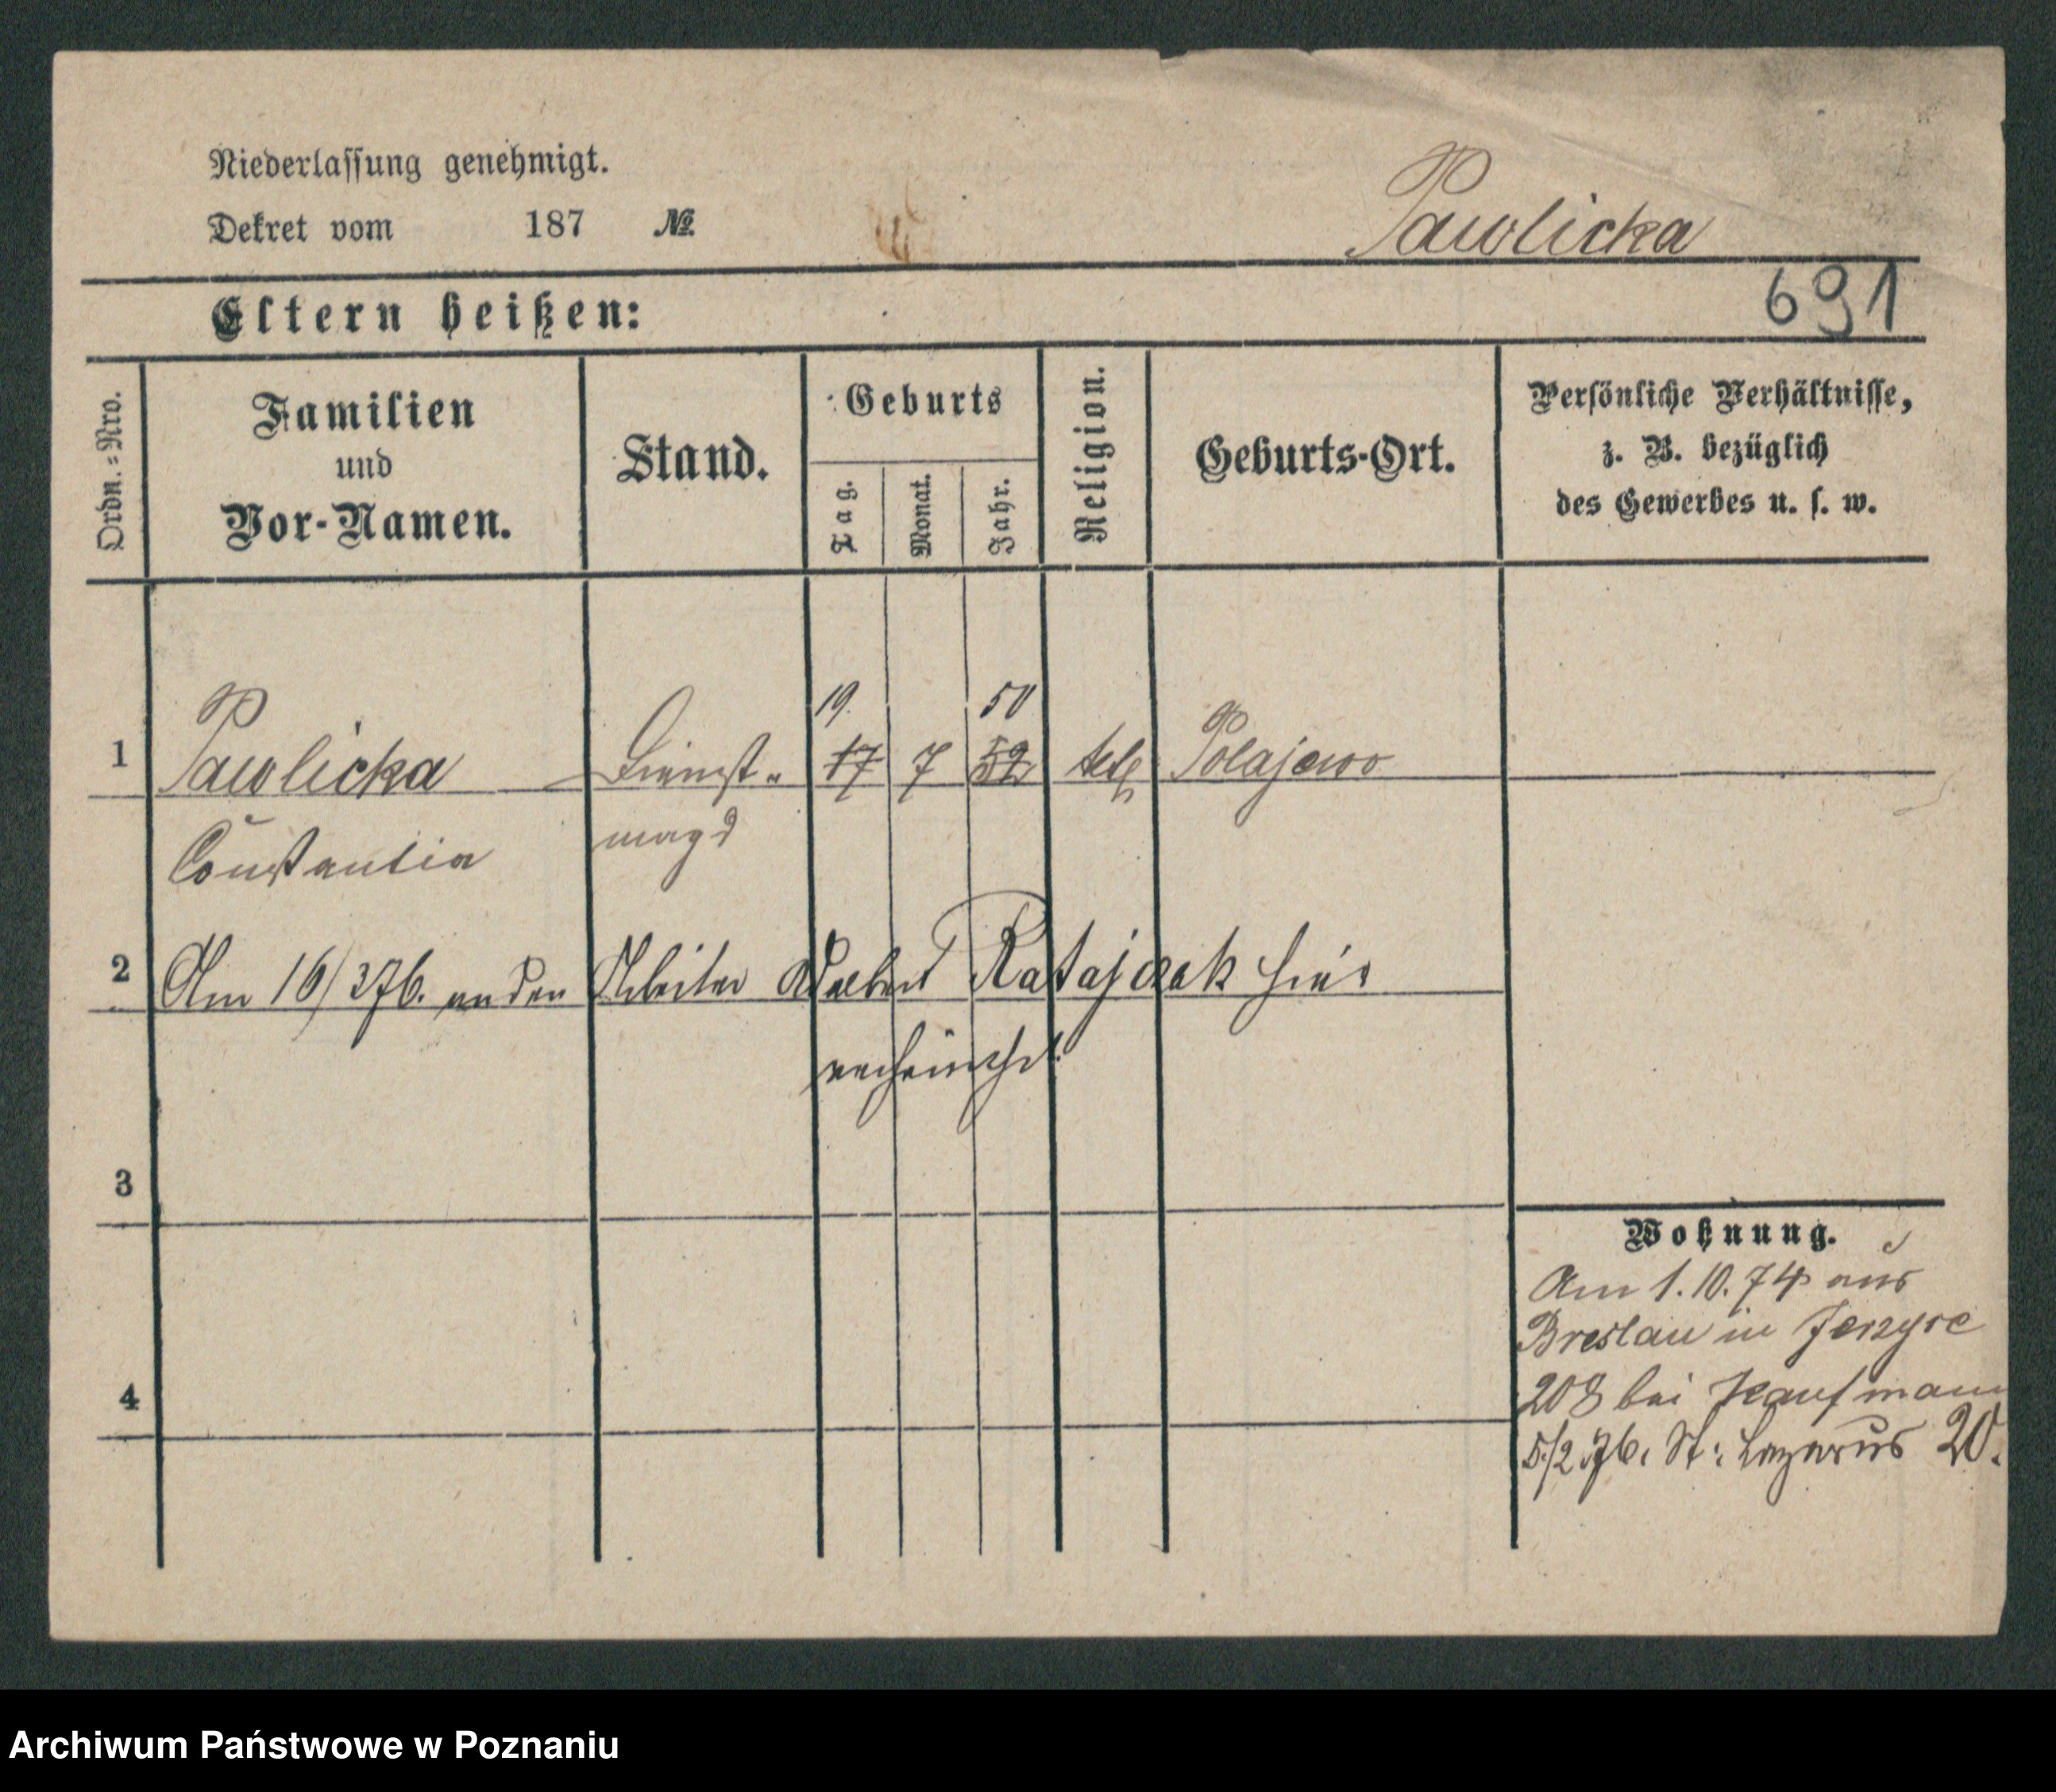 Niederlassung genehmigt.
Dekret vom 187 №
Pawlicka
691
Eltern heißen:
Ordn.=Nro.
Familien
und
Vor-Namen.
Stand.
Geburts
Tag.
Monat.
Jahr.
Religion.
Geburts-Ort.
Persönliche Verhältnisse,
z. B. bezüglich
des Gewerbes u. s. w.
19. 50
1 Pawlicka Dienst= 17 7 52 kath Polajewo
Constantia magd
2 Am 16/3 76. an den Arbeiter Ratajczak hier
verheirathet.
3
4
Wohnung.
Am 1.10.74 aus
Breslau in Jerzyce
208 bei Kaufmann
5/2 76. St: Lazarus 20.
Archiwum Państwowe w Poznaniu